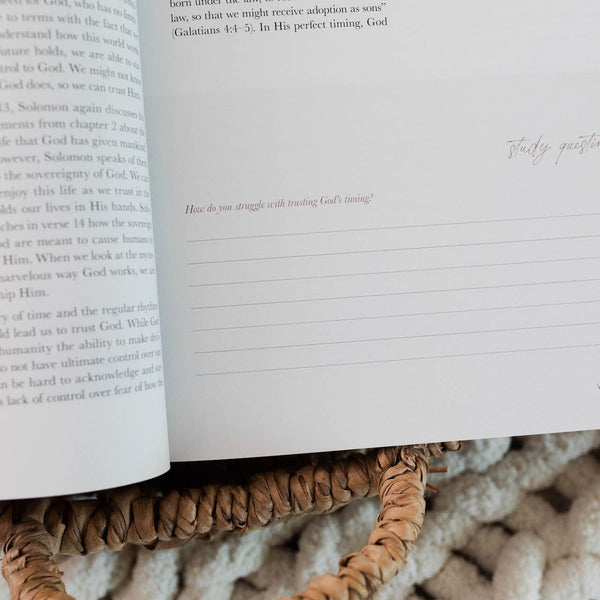 for God, who has no
to terms with the fact that
derstand how this world
future holds, we are able to
trol to God. We might not know
God does, so we can trust Him.
13, Solomon again discusses
ments from chapter 2 about the
ife that God has given mankind.
owever, Solomon speaks of
the sovereignty of God. We
enjoy this life as we trust in the
lds our lives in His hands. Solo-
ches in verse 14 how the
od are meant to cause humans
Him. When we look at the
marvelous way God works, we are
hip Him.
ry of time and the regular rhythms
ld lead us to trust God. While God
humanity the ability to make deci-
o not have ultimate control over our
n be hard to acknowledge and sur-
s lack of control over fear of how the
born under the law, to
law, so that we might receive adoption as sons"
(Galatians 4:4–5). In His perfect timing, God
study questi
How do you struggle with trusting God's timing?